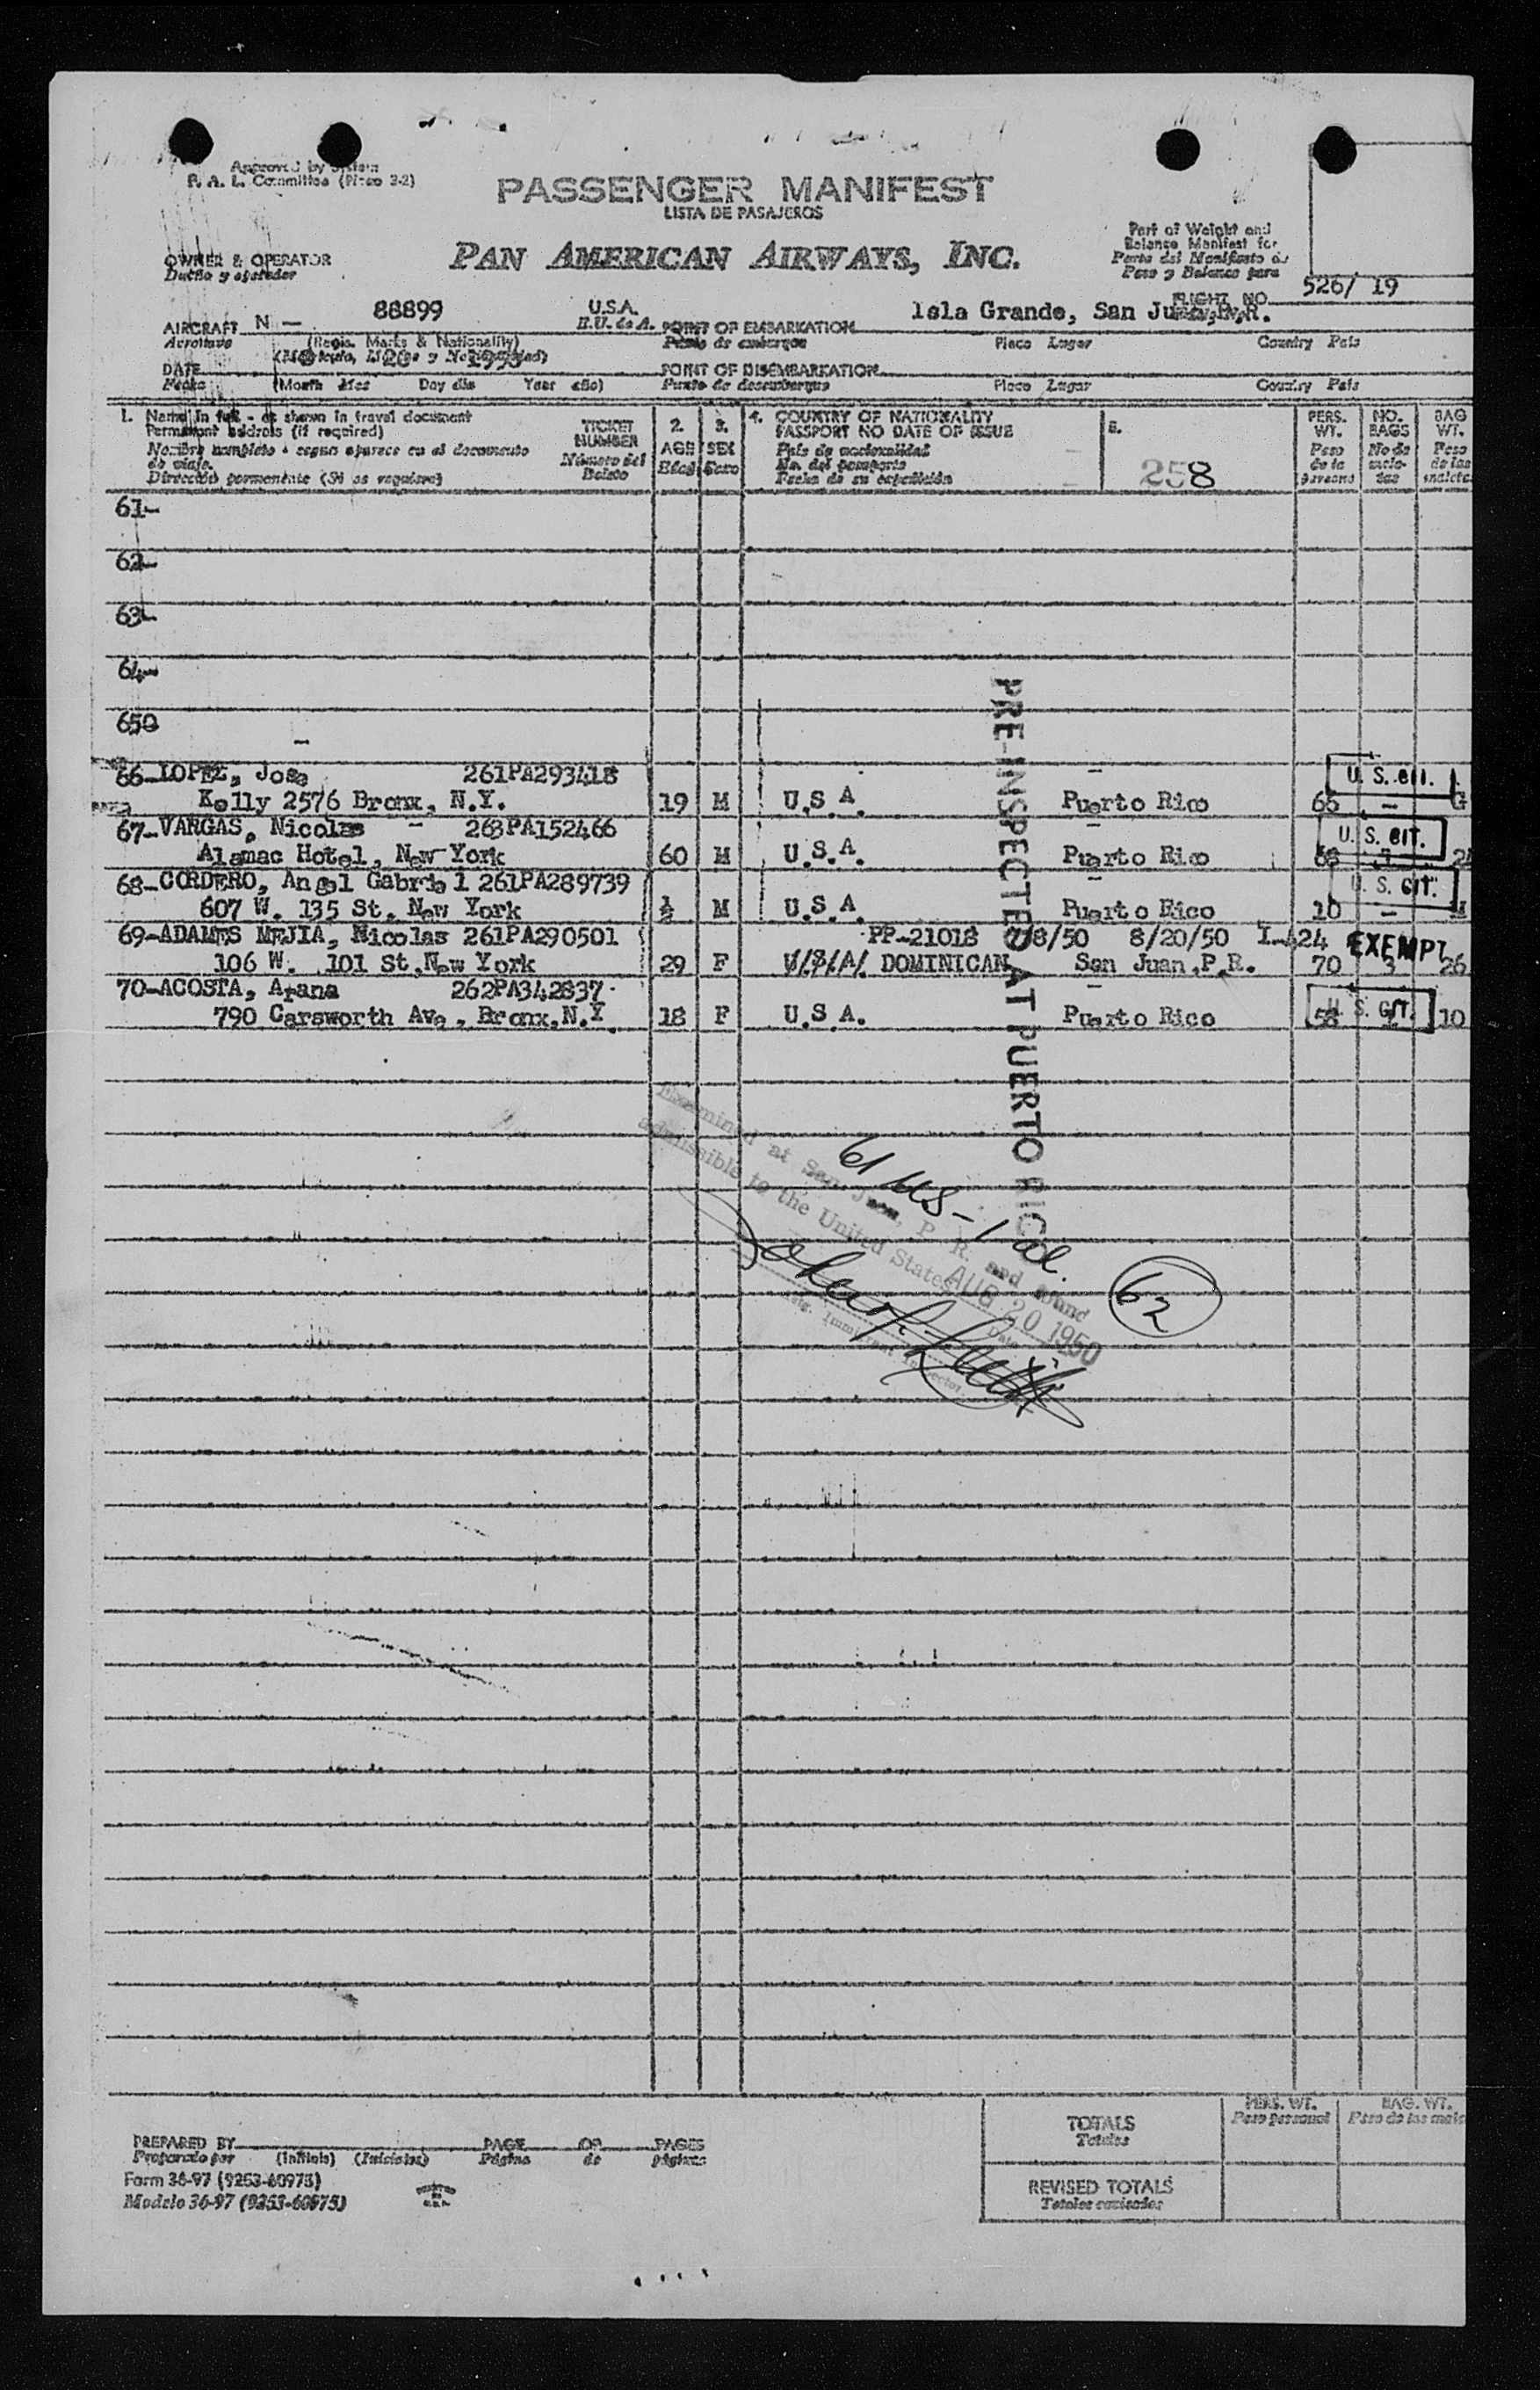 Approved by System
P. A. L. Committee (Piece 3-2)
PASSENGER MANIFEST
LISTA DE PASAJEROS
PAN AMERICAN AIRWAYS, INC.
Part of Weight and
Balance Manifest for
Parte del Manifiesto de
Peso y Balance para
OWNER & OPERATOR
Dueño y operador
526/ 19
FLIGHT NO.
AIRCRAFT N — 88899 U.S.A.
Aeronave (Regis. Marks & Nationality) E.U. de A.
POINT OF EMBARKATION Isla Grande, San Juan, P.R.
Punto de embarque Place Lugar Country País
DATE 20 1950
Fecha (Month Mes Day día Year año)
POINT OF DISEMBARKATION
Punto de desembarque Place Lugar Country País
1. Name in full - as shown in travel document
Permanent address (if required)
Nombre completo - según aparece en el documento
de viaje.
Dirección permanente (Si es requiere)
TICKET
NUMBER
Número del
Boleto
2.
AGE
Edad
3.
SEX
Sexo
4. COUNTRY OF NATIONALITY
PASSPORT NO DATE OF ISSUE
País de nacionalidad
No. del pasaporte
Fecha de su expedición
5.
258
PERS.
WT.
Peso
de la
persona
NO.
BAGS
No de
male-
tas
BAG
WT.
Peso
de las
61-
62-
63-
64-
650
66-LOPEZ, Jose 261PA293418 U. S. cit.
Kelly 2576 Bronx, N.Y. 19 M U.S A. Puerto Rico 65 -
67-VARGAS, Nicolas - 263PA152466 U. S. cit.
Alamac Hotel, New York 60 M U.S.A. Puerto Rico 68
68-CORDERO, Angel Gabriel 261PA289739 U. S. cit.
607 W. 135 St. New York ½ M U.S.A. Puerto Rico 10 -
69-ADAMES MEJIA, Nicolas 261PA290501 PP-21018 8/50 8/20/50 I-424 EXEMPT
106 W. 101 St. New York 29 F U/S/A/ DOMINICAN San Juan, P.R. 70 3 26
70-ACOSTA, Arana 262PA342837 U. S. CIT.
790 Carsworth Ave, Bronx, N.Y 18 F U.S A. Puerto Rico 58 10
PRE-INSPECTED AT PUERTO RICO
Examined at San Juan, P. R. and found
admissible to the United States
AUG 20 1950
Date
Immigrant Inspector
61 US - 1 al.
62
TOTALS
Totales
PERS. WT.
Peso personal
BAG. WT.
REVISED TOTALS
Totales revisados
PREPARED BY PAGE OF PAGES
Preparado por (Initials) (Iniciales) Página de páginas
Form 36-97 (9253-60975)
Modelo 36-97 (9253-60975)
PRINTED
IN
U.S.A.